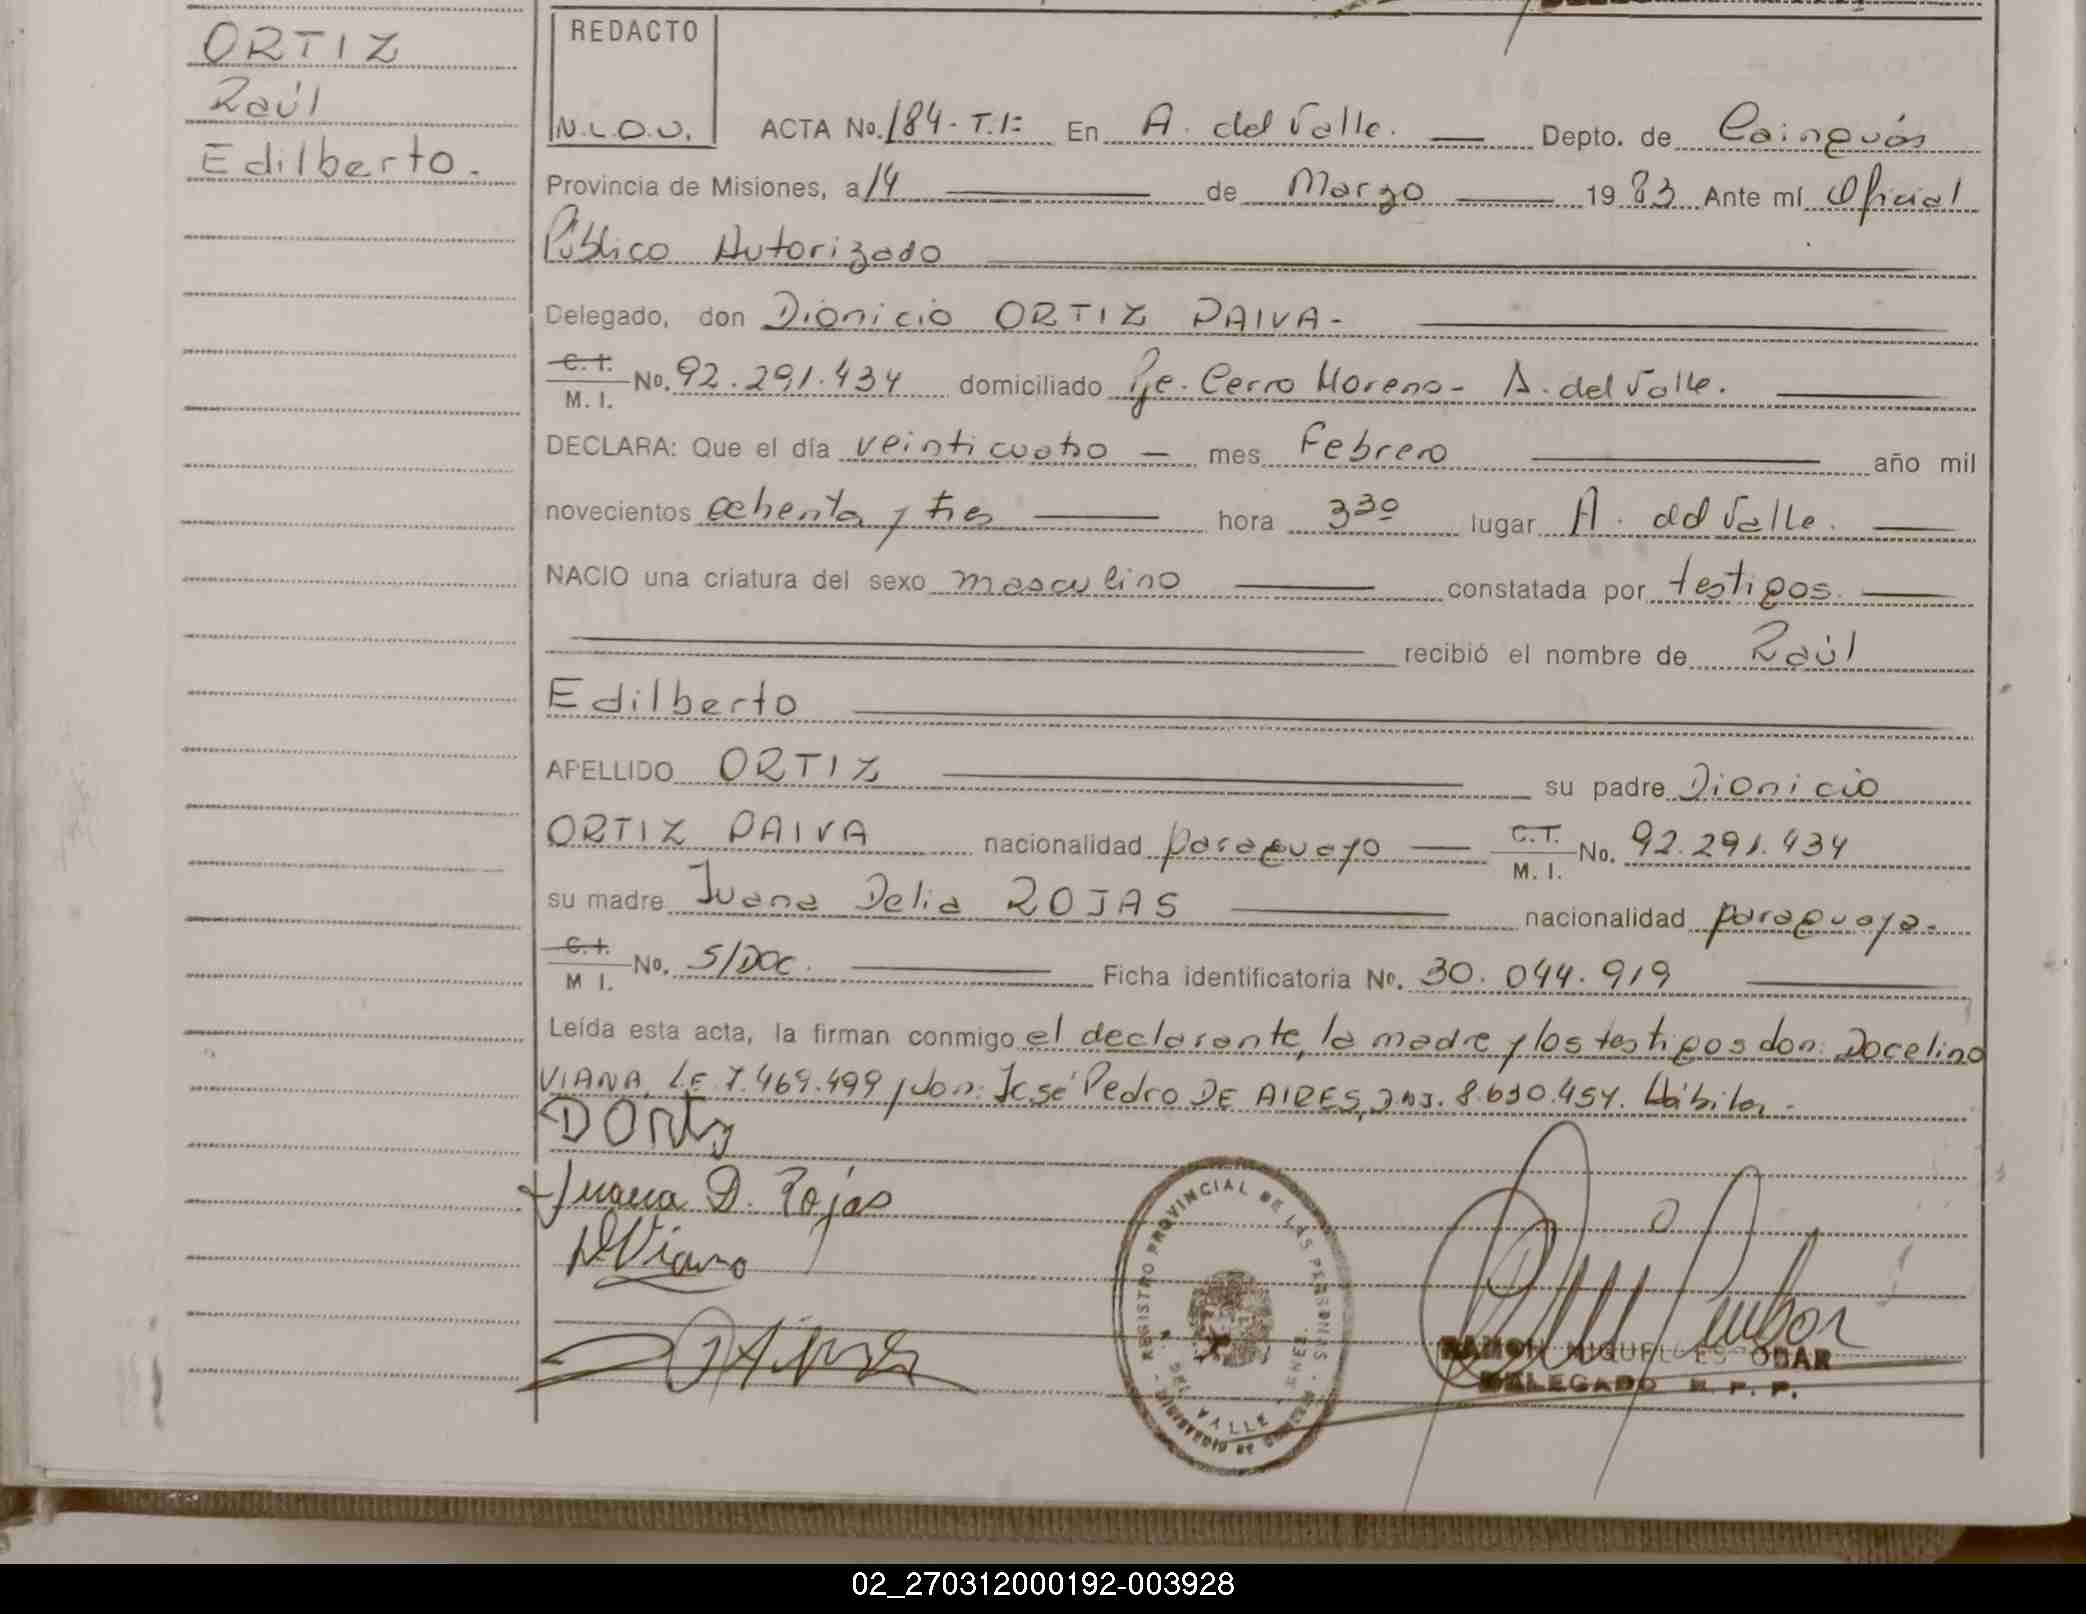 ORTIZ
Raúl
Edilberto.
REDACTO
N.L.O.U.
ACTA No. 184-T.I: En A. del Valle. Depto. de Cainguás
Provincia de Misiones, a 14 de Marzo 1983 Ante mí Oficial
Público Autorizado
Delegado, don Dionicio ORTIZ PAIVA-
C.I. M.I. No. 92.291.434 domiciliado Pje. Cerro Moreno- A. del Valle.
DECLARA: Que el día veinticuatro mes Febrero año mil
novecientos ochenta y tres hora 3 30 lugar A. del Valle.
NACIO una criatura del sexo masculino constatada por testigos.
recibió el nombre de Raúl
Edilberto
APELLIDO ORTIZ su padre Dionicio
ORTIZ PAIVA nacionalidad paraguayo C.I. M.I. No. 92.291.434
su madre Juana Delia ROJAS nacionalidad paraguaya.
C.I. M I. No. S/DOC. Ficha identificatoria No. 30.044.919
Leída esta acta, la firman conmigo el declarante, la madre y los testigos don: Docelino
VIANA, L.E 7.469.499 y don: José Pedro DE AIRES, DNI. 8.630.454. Hábiles.-
D Ortiz
Juana D. Rojas
D Viana
REGISTRO PROVINCIAL DE LAS PERSONAS
DEL VALLE
MINISTERIO DE GOBIERNO
RAMON MIGUEL ESCOBAR
DELEGADO R. P. P.
02_270312000192-003928